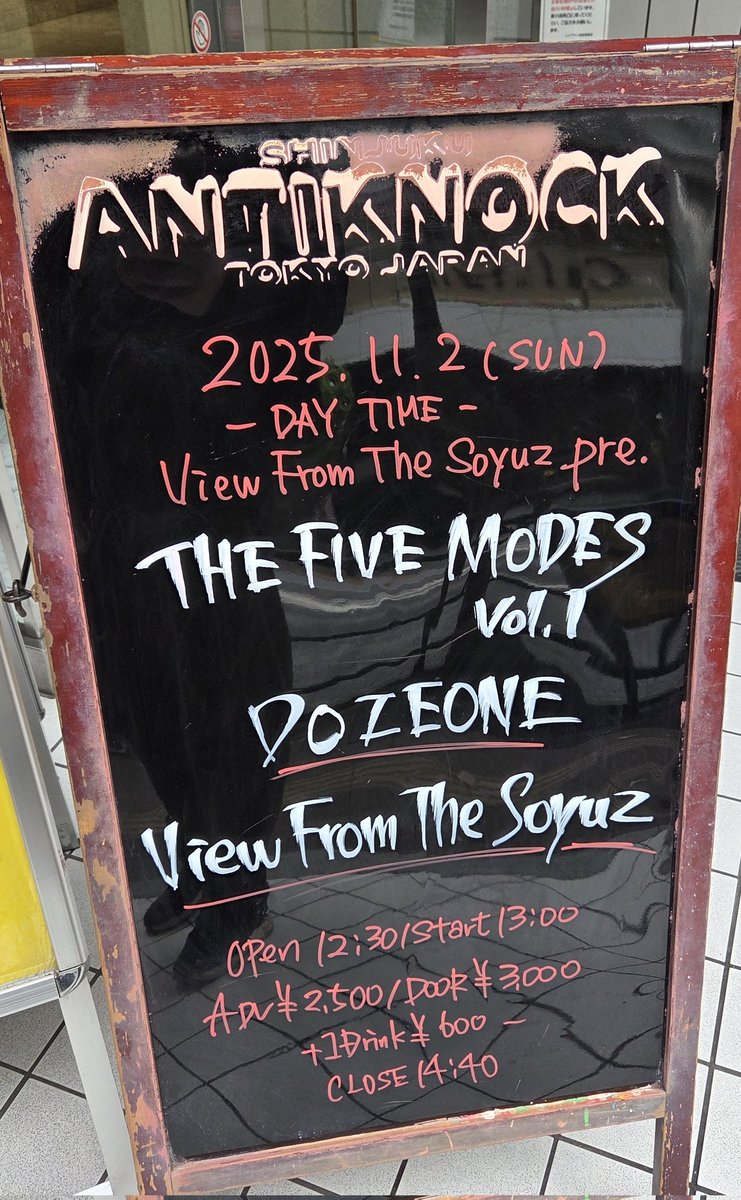 SHINJUKU
ANTIKNOCK
TOKYO JAPAN
2025.11.2(SUN)
- DAY TIME -
View From The Soyuz pre.
THE FIVE MODES
vol.1
DOZEONE
View From The Soyuz
OPen 12:30/Start 13:00
ADV ¥2,500/DOOR ¥3,000
+1Drink ¥600-
CLOSE 14:40